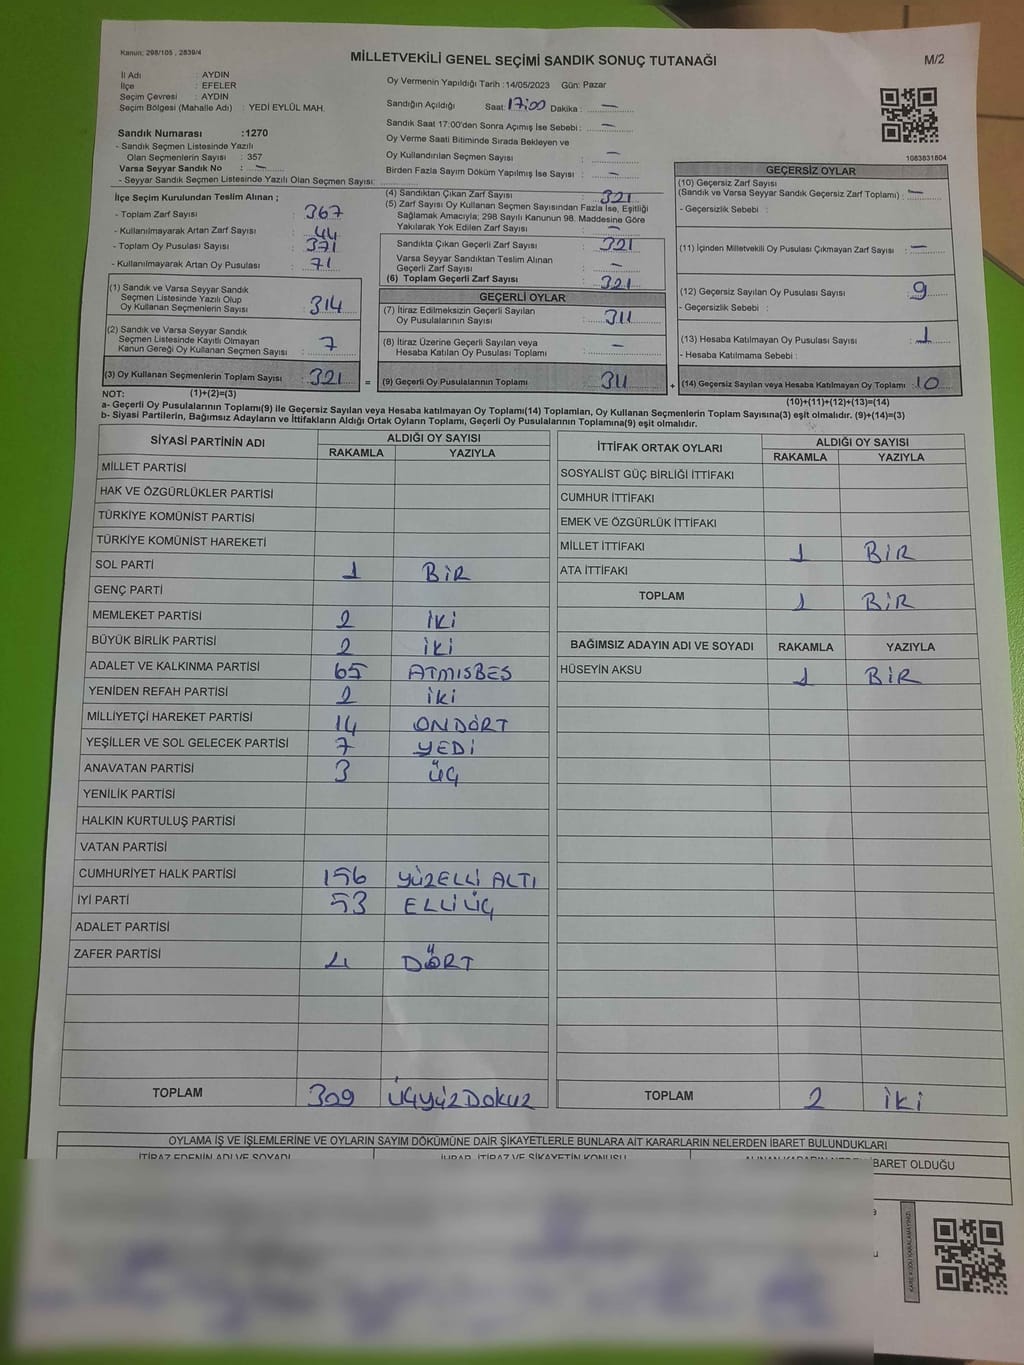 Kanun; 298/105 , 2839/4
MİLLETVEKİLİ GENEL SEÇİMİ SANDIK SONUÇ TUTANAĞI
M/2
İl Adı : AYDIN
İlçe : EFELER
Seçim Çevresi : AYDIN
Seçim Bölgesi (Mahalle Adı) : YEDİ EYLÜL MAH.
Sandık Numarası :1270
- Sandık Seçmen Listesinde Yazılı
Olan Seçmenlerin Sayısı : 357
Varsa Seyyar Sandık No : –
- Seyyar Sandık Seçmen Listesinde Yazılı Olan Seçmen Sayısı:
İlçe Seçim Kurulundan Teslim Alınan ;
- Toplam Zarf Sayısı : 367
- Kullanılmayarak Artan Zarf Sayısı : 44
- Toplam Oy Pusulası Sayısı : 371
- Kullanılmayarak Artan Oy Pusulası : 71
(1) Sandık ve Varsa Seyyar Sandık
Seçmen Listesinde Yazılı Olup
Oy Kullanan Seçmenlerin Sayısı : 314
(2) Sandık ve Varsa Seyyar Sandık
Seçmen Listesinde Kayıtlı Olmayan
Kanun Gereği Oy Kullanan Seçmen Sayısı : 7
(3) Oy Kullanan Seçmenlerin Toplam Sayısı : 321
Oy Vermenin Yapıldığı Tarih : 14/05/2023 Gün: Pazar
Sandığın Açıldığı Saat: 17:00 Dakika : –
Sandık Saat 17:00'den Sonra Açımış İse Sebebi : –
Oy Verme Saati Bitiminde Sırada Bekleyen ve
Oy Kullandırılan Seçmen Sayısı : –
Birden Fazla Sayım Döküm Yapılmış İse Sayısı : –
(4) Sandıktan Çıkan Zarf Sayısı : 321
(5) Zarf Sayısı Oy Kullanan Seçmen Sayısından Fazla İse, Eşitliği
Sağlamak Amacıyla; 298 Sayılı Kanunun 98. Maddesine Göre
Yakılarak Yok Edilen Zarf Sayısı : –
Sandıkta Çıkan Geçerli Zarf Sayısı : 321
Varsa Seyyar Sandıktan Teslim Alınan
Geçerli Zarf Sayısı : –
(6) Toplam Geçerli Zarf Sayısı : 321
GEÇERLİ OYLAR
(7) İtiraz Edilmeksizin Geçerli Sayılan
Oy Pusulalarının Sayısı : 311
(8) İtiraz Üzerine Geçerli Sayılan veya
Hesaba Katılan Oy Pusulası Toplamı : –
= (9) Geçerli Oy Pusulalarının Toplamı : 311
1083831804
GEÇERSİZ OYLAR
(10) Geçersiz Zarf Sayısı
(Sandık ve Varsa Seyyar Sandık Geçersiz Zarf Toplamı) : –
- Geçersizlik Sebebi :
(11) İçinden Milletvekili Oy Pusulası Çıkmayan Zarf Sayısı : –
(12) Geçersiz Sayılan Oy Pusulası Sayısı : 9
- Geçersizlik Sebebi :
(13) Hesaba Katılmayan Oy Pusulası Sayısı : 1
- Hesaba Katılmama Sebebi :
+ (14) Geçersiz Sayılan veya Hesaba Katılmayan Oy Toplamı : 10
NOT: (1)+(2)=(3)
(10)+(11)+(12)+(13)=(14)
a- Geçerli Oy Pusulalarının Toplamı(9) ile Geçersiz Sayılan veya Hesaba katılmayan Oy Toplamı(14) Toplamları, Oy Kullanan Seçmenlerin Toplam Sayısına(3) eşit olmalıdır. (9)+(14)=(3)
b- Siyasi Partilerin, Bağımsız Adayların ve İttifakların Aldığı Ortak Oyların Toplamı, Geçerli Oy Pusulalarının Toplamına(9) eşit olmalıdır.
SİYASİ PARTİNİN ADI ALDIĞI OY SAYISI
RAKAMLA YAZIYLA
MİLLET PARTİSİ
HAK VE ÖZGÜRLÜKLER PARTİSİ
TÜRKİYE KOMÜNİST PARTİSİ
TÜRKİYE KOMÜNİST HAREKETİ
SOL PARTİ 1 BİR
GENÇ PARTİ
MEMLEKET PARTİSİ 2 İKİ
BÜYÜK BİRLİK PARTİSİ 2 İKİ
ADALET VE KALKINMA PARTİSİ 65 ATMISBES
YENİDEN REFAH PARTİSİ 2 İKİ
MİLLİYETÇİ HAREKET PARTİSİ 14 ONDÖRT
YEŞİLLER VE SOL GELECEK PARTİSİ 7 YEDİ
ANAVATAN PARTİSİ 3 ÜÇ
YENİLİK PARTİSİ
HALKIN KURTULUŞ PARTİSİ
VATAN PARTİSİ
CUMHURİYET HALK PARTİSİ 156 YÜZELLİ ALTI
İYİ PARTİ 53 ELLİ ÜÇ
ADALET PARTİSİ
ZAFER PARTİSİ 4 DÖRT
TOPLAM 309 ÜÇYÜZDOKUZ
İTTİFAK ORTAK OYLARI ALDIĞI OY SAYISI
RAKAMLA YAZIYLA
SOSYALİST GÜÇ BİRLİĞİ İTTİFAKI
CUMHUR İTTİFAKI
EMEK VE ÖZGÜRLÜK İTTİFAKI
MİLLET İTTİFAKI 1 BİR
ATA İTTİFAKI
TOPLAM 1 BİR
BAĞIMSIZ ADAYIN ADI VE SOYADI RAKAMLA YAZIYLA
HÜSEYİN AKSU 1 BİR
TOPLAM 2 İKİ
OYLAMA İŞ VE İŞLEMLERİNE VE OYLARIN SAYIM DÖKÜMÜNE DAİR ŞİKAYETLERLE BUNLARA AİT KARARLARIN NELERDEN İBARET BULUNDUKLARI
İTİRAZ EDENİN ADI VE SOYADI
İHBAR, İTİRAZ VE ŞİKAYETİN KONUSU
İBARET OLDUĞU
KARE KODU KARALAMAYINIZ!